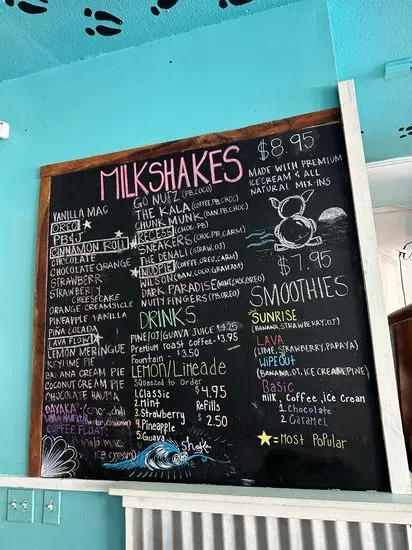 MILKSHAKES
$8.95
MADE WITH PREMIUM
ICE CREAM & ALL
NATURAL MIX-INS
VANILLA MAC
OREO
PB & J
CINNAMON ROLL
CHOCOLATE
CHOCOLATE ORANGE
STRAWBERRY
STRAWBERRY
CHEESECAKE
ORANGE CREAMSICLE
PINEAPPLE VANILLA
PIÑA COLADA
LAVA FLOW
LEMON MERINGUE
KEYLIME PIE
BANANA CREAM PIE
COCONUT CREAM PIE
CHOCOLATE HAUPIA
OAXAKA
COFFEE FLOAT
ice cream)
GO NUTZ (PB, COCO)
THE KALA (COFFEE, PB, CHOC)
CHUNK MUNK (BAN, PB, CHOC)
RECESS (CHOC, PB)
SNEAKERS (CHOC, PB, CARM)
THE DENALI (STRAW, OJ)
MUDPIE (COFFEE, OREO, CARM)
WILSON (BAN, COCO, GRAHAM)
DARK PARADISE (MINT, CHOC, OREO)
NUTTY FINGERS (PB, OREO)
DRINKS
PINE/OJ/GUAVA JUICE $4.25
Premium Roast Coffee $3.95
Fountain - $3.50
LEMON/LIMEADE
Squeezed to Order
1. Classic
2. Mint
3. Strawberry
4. Pineapple
5. Guava
$4.95
Refills
$2.50
Shake
$7.95
SMOOTHIES
SUNRISE
(BANANA, STRAWBERRY, OJ)
LAVA
(LIME, STRAWBERRY, PAPAYA)
WIPEOUT
(BANANA, OJ, ICE CREAM, PINE)
Basic
Milk, Coffee, Ice Cream
1. Chocolate
2. Caramel
= Most Popular